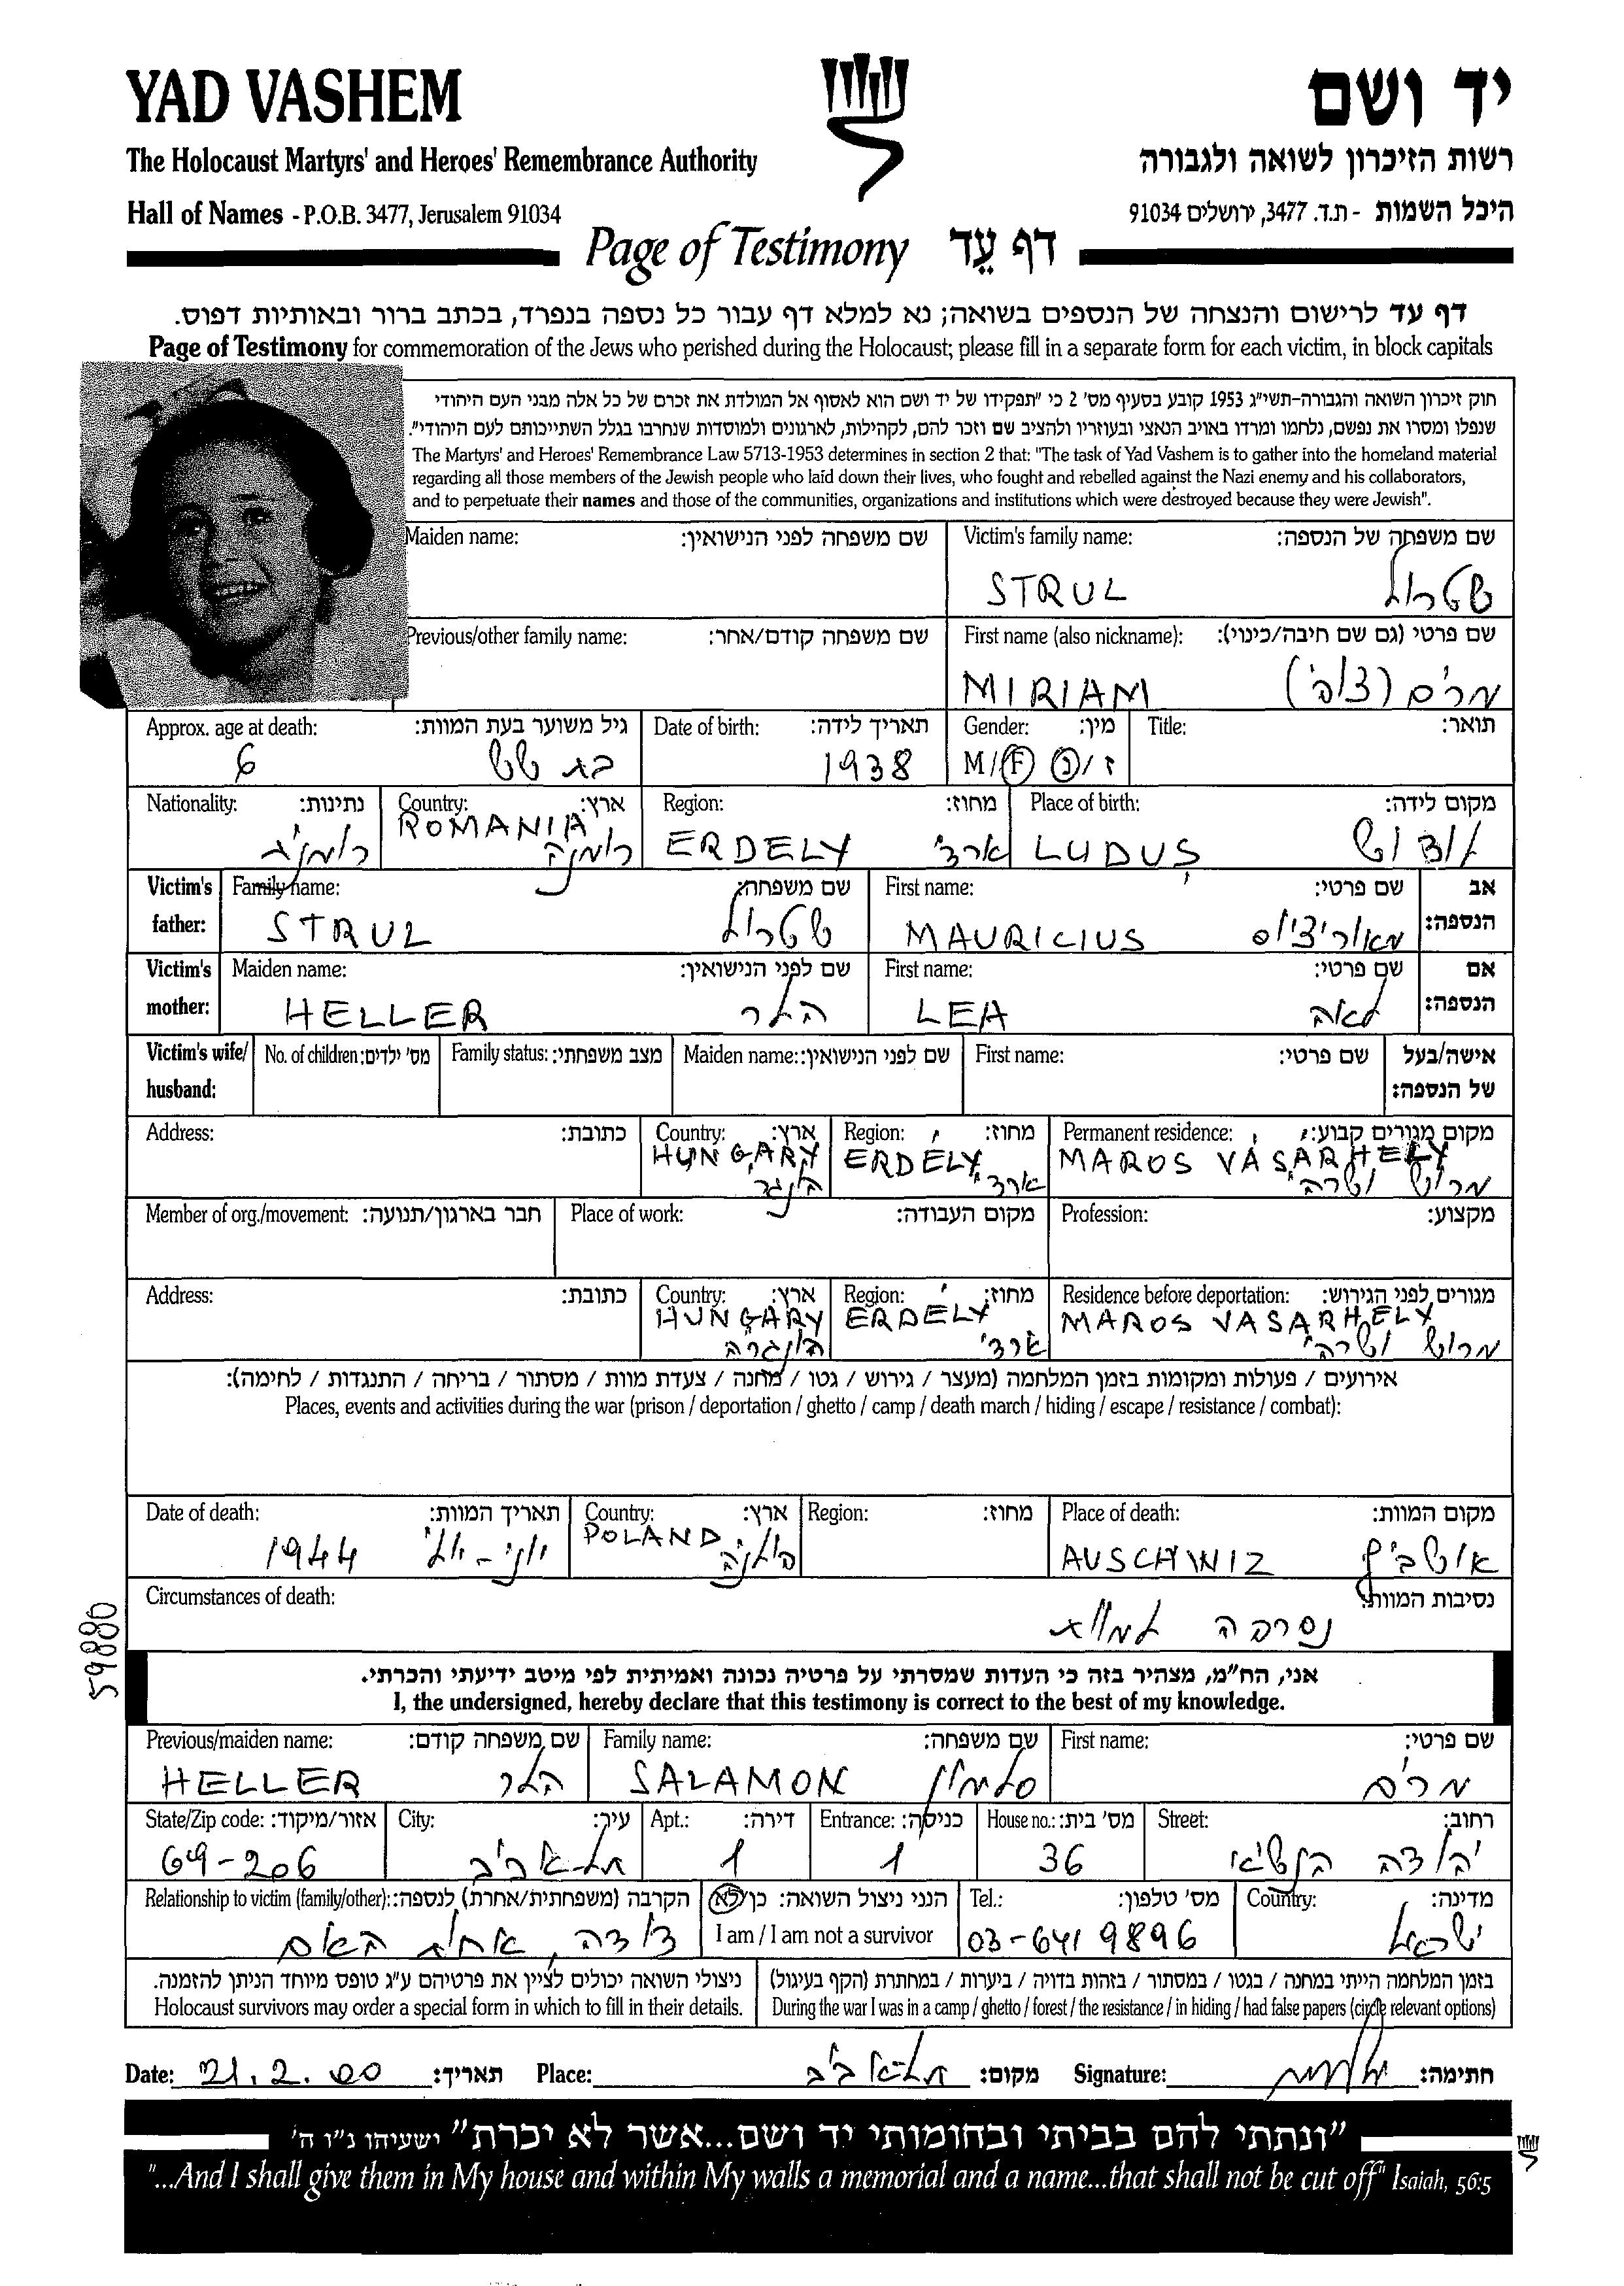 YAD VASHEM
יד ושם
The Holocaust Martyrs' and Heroes' Remembrance Authority
רשות הזיכרון לשואה ולגבורה
Hall of Names - P.O.B. 3477, Jerusalem 91034
היכל השמות - ת.ד. 3477, ירושלים 91034
Page of Testimony דף עֵד
דף עד לרישום והנצחה של הנספים בשואה; נא למלא דף עבור כל נספה בנפרד, בכתב ברור ובאותיות דפוס.
Page of Testimony for commemoration of the Jews who perished during the Holocaust; please fill in a separate form for each victim, in block capitals
חוק זיכרון השואה והגבורה-תשי"ג 1953 קובע בסעיף מס' 2 כי "תפקידו של יד ושם הוא לאסוף אל המולדת את זכרם של כל אלה מבני העם היהודי
שנפלו ומסרו את נפשם, נלחמו ומרדו באויב הנאצי ובעוזריו ולהציב שם וזכר להם, לקהילות, לארגונים ולמוסדות שנחרבו בגלל השתייכותם לעם היהודי".
The Martyrs' and Heroes' Remembrance Law 5713-1953 determines in section 2 that: "The task of Yad Vashem is to gather into the homeland material
regarding all those members of the Jewish people who laid down their lives, who fought and rebelled against the Nazi enemy and his collaborators,
and to perpetuate their names and those of the communities, organizations and institutions which were destroyed because they were Jewish".
Maiden name: שם משפחה לפני הנישואין: Victim's family name: שם משפחה של הנספה:
STRUL שטרול
Previous/other family name: שם משפחה קודם/אחר: First name (also nickname): שם פרטי (גם שם חיבה/כינוי):
MIRIAM מרים
Approx. age at death: גיל משוער בעת המוות: Date of birth: תאריך לידה: Gender: מין: Title: תואר:
6 בת שש 1938 M/F ז/נ
Nationality: נתינות: Country: ארץ: Region: מחוז: Place of birth: מקום לידה:
ROMANIA רומניה ERDELY ארדי LUDUȘ לודוש
Victim's father: Family name: שם משפחה: First name: שם פרטי: אב הנספה:
STRUL שטרול MAURICIUS מאוריציוס
Victim's mother: Maiden name: שם לפני הנישואין: First name: שם פרטי: אם הנספה:
HELLER הלר LEA לאה
Victim's wife/husband: No. of children: מס' ילדים: Family status: מצב משפחתי: Maiden name: שם לפני הנישואין: First name: שם פרטי: אישה/בעל של הנספה:
Address: כתובת: Country: ארץ: Region: מחוז: Permanent residence: מקום מגורים קבוע:
HUNGARY ERDÉLY ארדי MAROS VÁSÁRHELY
Member of org./movement: חבר בארגון/תנועה: Place of work: מקום העבודה: Profession: מקצוע:
Address: כתובת: Country: ארץ: Region: מחוז: Residence before deportation: מגורים לפני הגירוש:
HUNGARY הונגריה ERDÉLY ארדי MAROS VASARHELY
אירועים / פעולות ומקומות בזמן המלחמה (מעצר / גירוש / גטו / מחנה / צעדת מוות / מסתור / בריחה / התנגדות / לחימה):
Places, events and activities during the war (prison / deportation / ghetto / camp / death march / hiding / escape / resistance / combat):
Date of death: תאריך המוות: Country: ארץ: Region: מחוז: Place of death: מקום המוות:
1944 יוני-יולי POLAND פולניה AUSCHWIZ אושביץ
Circumstances of death: נסיבות המוות:
נספתה למוות
59880
אני, הח"מ, מצהיר בזה כי העדות שמסרתי על פרטיה נכונה ואמיתית לפי מיטב ידיעתי והכרתי.
I, the undersigned, hereby declare that this testimony is correct to the best of my knowledge.
Previous/maiden name: שם משפחה קודם: Family name: שם משפחה: First name: שם פרטי:
HELLER הלר SALAMON סלמון מרים
State/Zip code: אזור/מיקוד: City: עיר: Apt.: דירה: Entrance: כניסה: House no.: מס' בית: Street: רחוב:
69-206 תל אביב 1 1 36 יהודה הנשיא
Relationship to victim (family/other): הקרבה (משפחתית/אחרת) לנספה: הנני ניצול השואה: כן/לא Tel.: מס' טלפון: Country: מדינה:
דודה, אחות האם I am / I am not a survivor 03-641 9896 ישראל
ניצולי השואה יכולים לציין את פרטיהם ע"ג טופס מיוחד הניתן להזמנה. בזמן המלחמה הייתי במחנה / בגטו / במסתור / בזהות בדויה / ביערות / במחתרת (הקף בעיגול)
Holocaust survivors may order a special form in which to fill in their details. During the war I was in a camp / ghetto / forest / the resistance / in hiding / had false papers (circle relevant options)
Date: 21.2.00 תאריך: Place: תל אביב מקום: Signature: חתימה:
"ונתתי להם בביתי ובחומותי יד ושם...אשר לא יכרת" ישעיהו נ"ו ה'
"...And I shall give them in My house and within My walls a memorial and a name...that shall not be cut off" Isaiah, 56:5